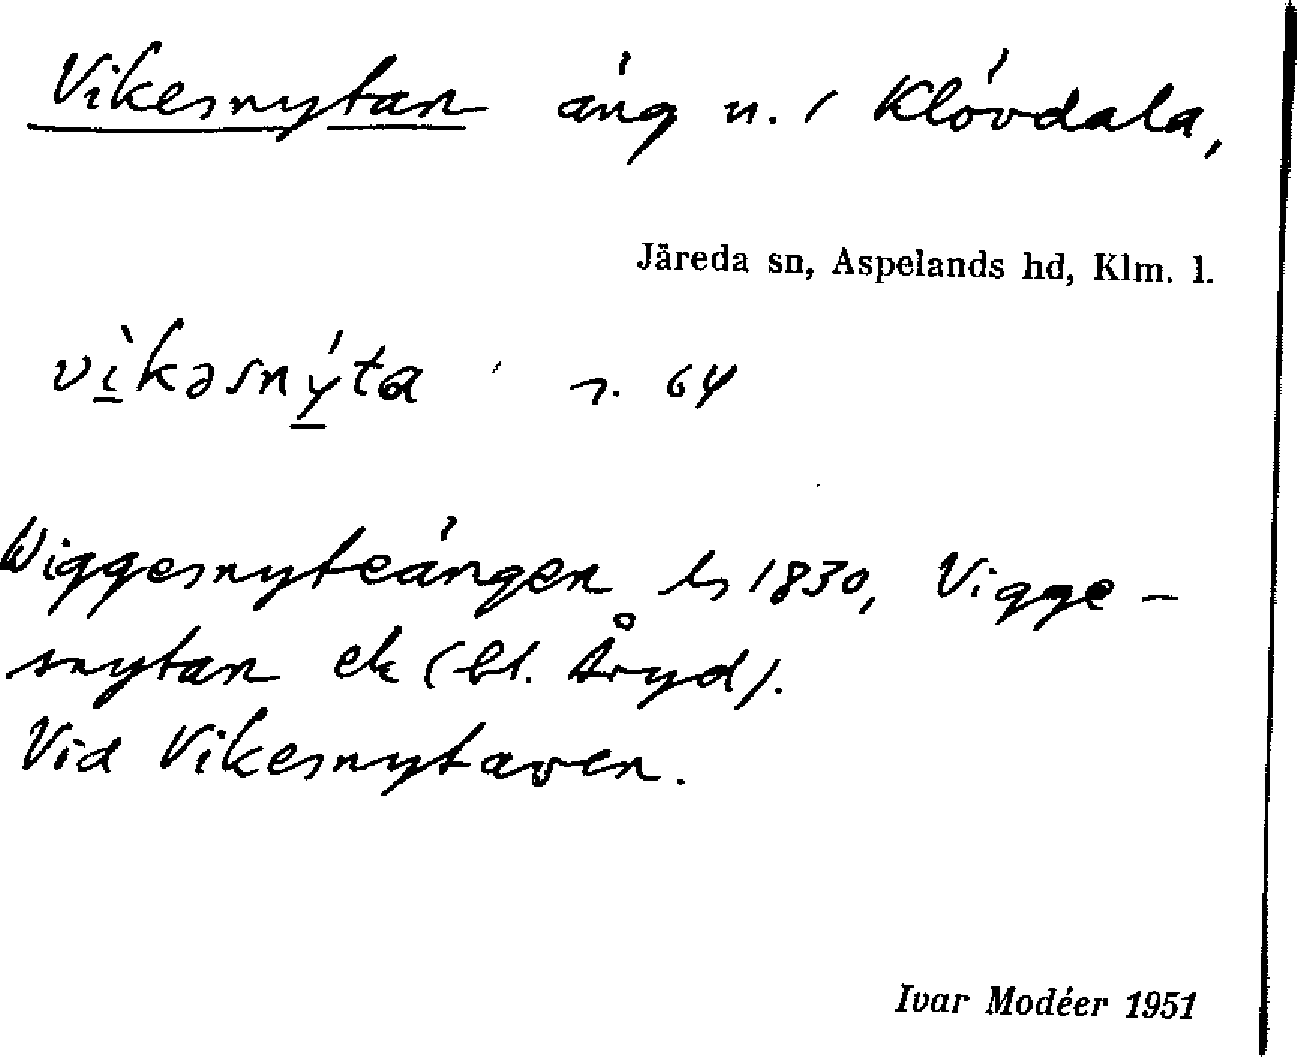 Vikesnytan äng n. i Klövdala,
Järeda sn, Aspelands hd, Klm. l.
vìkəsnýta r. 64
Wiggesnyteängen ls 1830, Vigge-
snytan ek (bl. Åryd).
Vid Vikesnytaven.
Ivar Modéer 1951